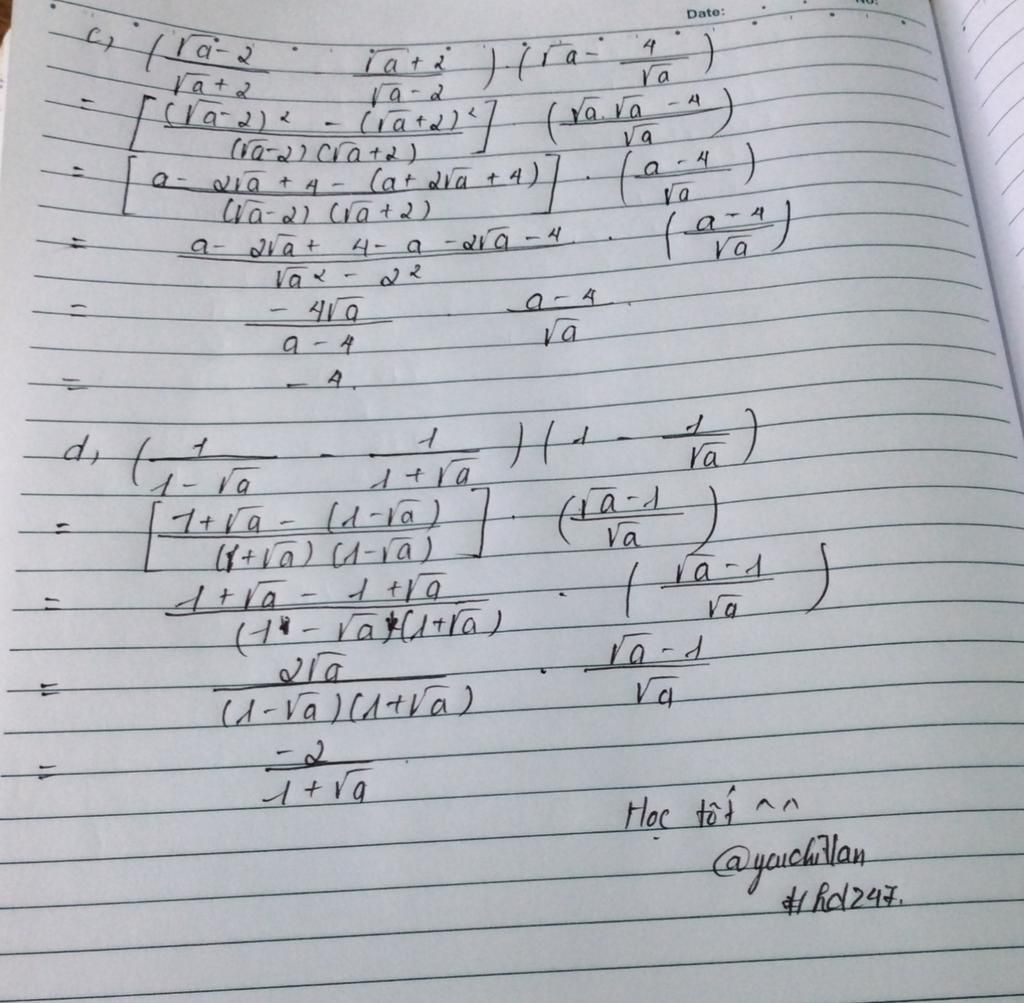 Date: No:
c, (√a-2 / √a+2   √a+2 / √a-2) . (√a - 4/√a)
= [(√a-2)² - (√a+2)² / (√a-2)(√a+2)] (√a.√a - 4 / √a)
= [a - 2√a + 4 - (a + 2√a + 4) / (√a-2)(√a+2)] . (a-4 / √a)
= a - 2√a + 4 - a - 2√a - 4 / √a² - 2² . (a-4 / √a)
= -4√a / a-4 . a-4 / √a
= -4.
d, (1 / 1-√a - 1 / 1+√a) (1 - 1/√a)
= [1+√a - (1-√a) / (1+√a)(1-√a)] . (√a-1 / √a)
= 1+√a - 1+√a / (1-√a)(1+√a) . (√a-1 / √a)
= 2√a / (1-√a)(1+√a) . √a-1 / √a
= -2 / 1+√a
Học tốt ^^
#hd247.